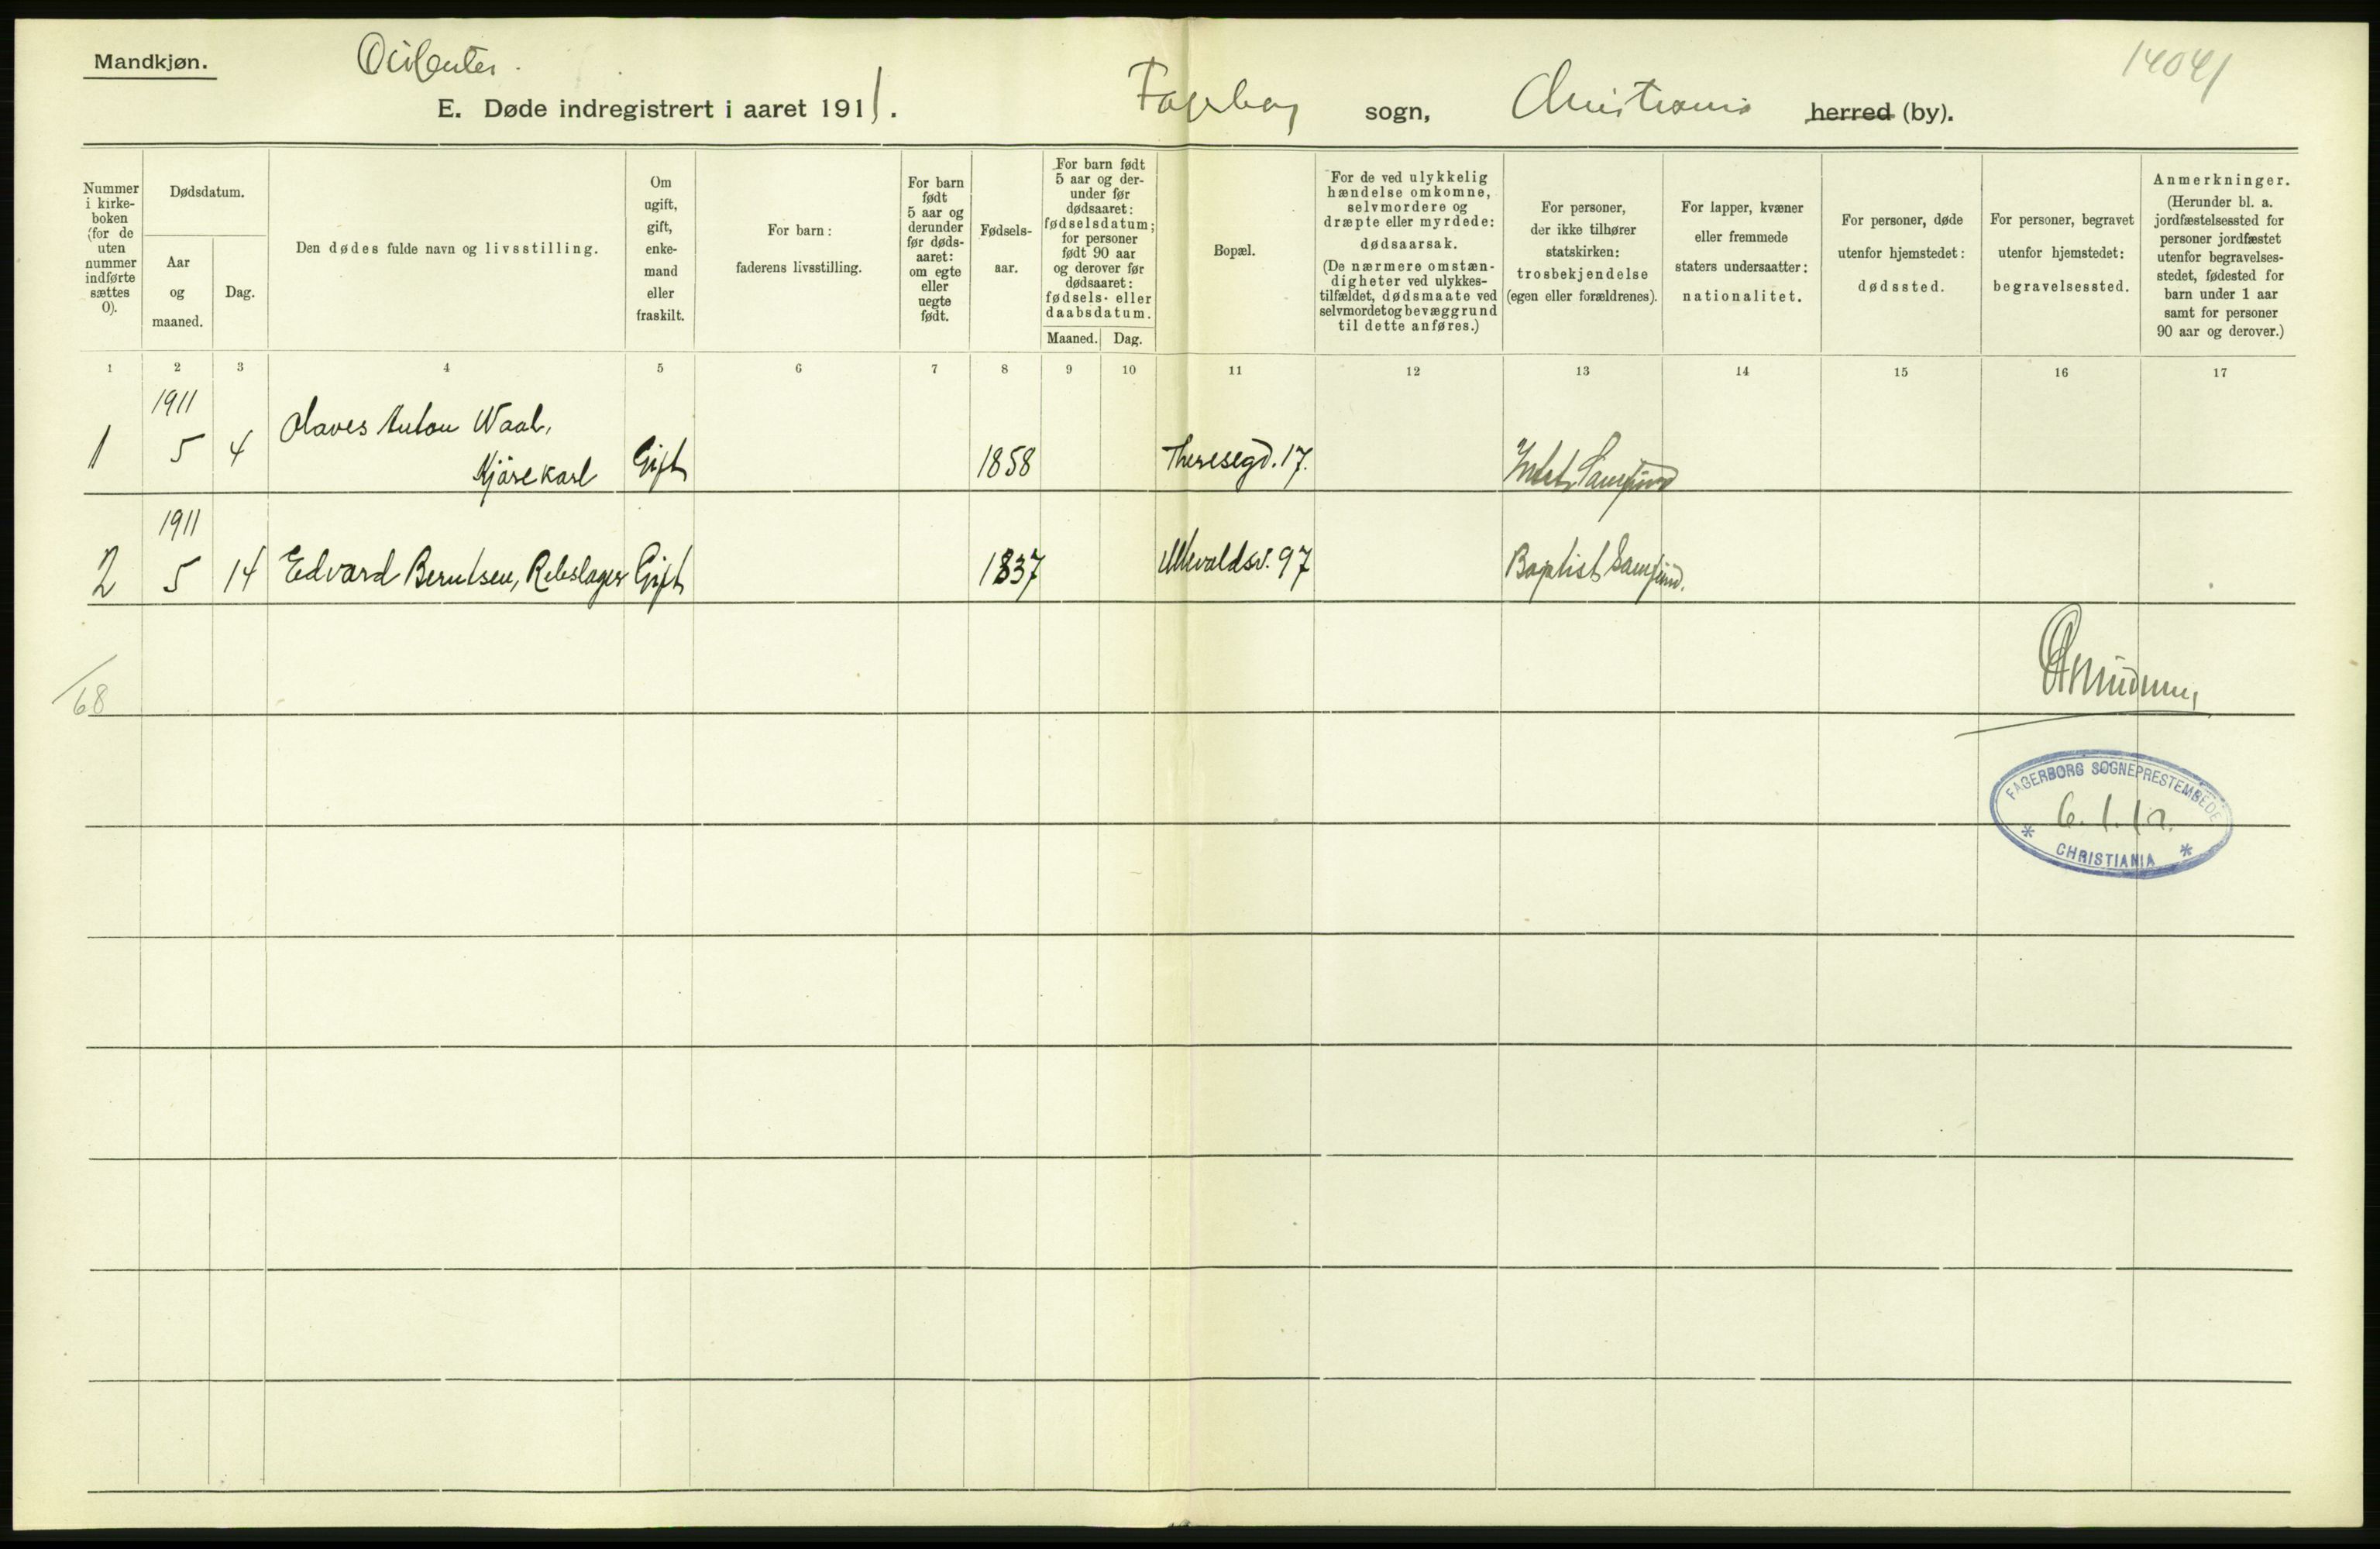 Mandkjøn.
14041
E. Døde indregistrert i aaret 1911. Fagerborg sogn, Christiania herred (by).
Nummer i kirke-boken (for de uten nummer indførte sættes 0).
Dødsdatum.
Aar og maaned.
Dag.
Den dødes fulde navn og livsstilling.
Om ugift, gift, enke-mand eller fraskilt.
For barn: faderens livsstilling.
For barn født 5 aar og derunder før døds-aaret: om egte eller uegte født.
Fødsels-aar.
For barn født 5 aar og der-under før dødsaaret: fødselsdatum; for personer født 90 aar og derover før dødsaaret: fødsels- eller daabsdatum.
Maaned.
Dag.
Bopæl.
For de ved ulykkelig hændelse omkomne, selvmordere og dræpte eller myrdede: dødsaarsak. (De nærmere omstæn-digheter ved ulykkes-tilfældet, dødsmaate ved selvmordet og bevæggrund til dette anføres.)
For personer, der ikke tilhører statskirken: trosbekjendelse (egen eller forældrenes).
For lapper, kvæner eller fremmede staters undersaatter: nationalitet.
For personer, døde utenfor hjemstedet: dødssted.
For personer, begravet utenfor hjemstedet: begravelsessted.
Anmerkninger. (Herunder bl. a. jordfæstelsessted for personer jordfæstet utenfor begravelses-stedet, fødested for barn under 1 aar samt for personer 90 aar og derover.)
1 2 3 4 5 6 7 8 9 10 11 12 13 14 15 16 17
1911
1 5 4 Olaves Anton Waal,
Kjørekarl Gift 1858 Theresegd. 17.
1911
2 5 14 Edvard Berntsen, Rebslager Gift 1837 Ullevaldsv. 97 Baptist Samfund.
/68
FAGERBORG SOGNEPRESTEMBEDE
6.1.12.
* CHRISTIANIA *